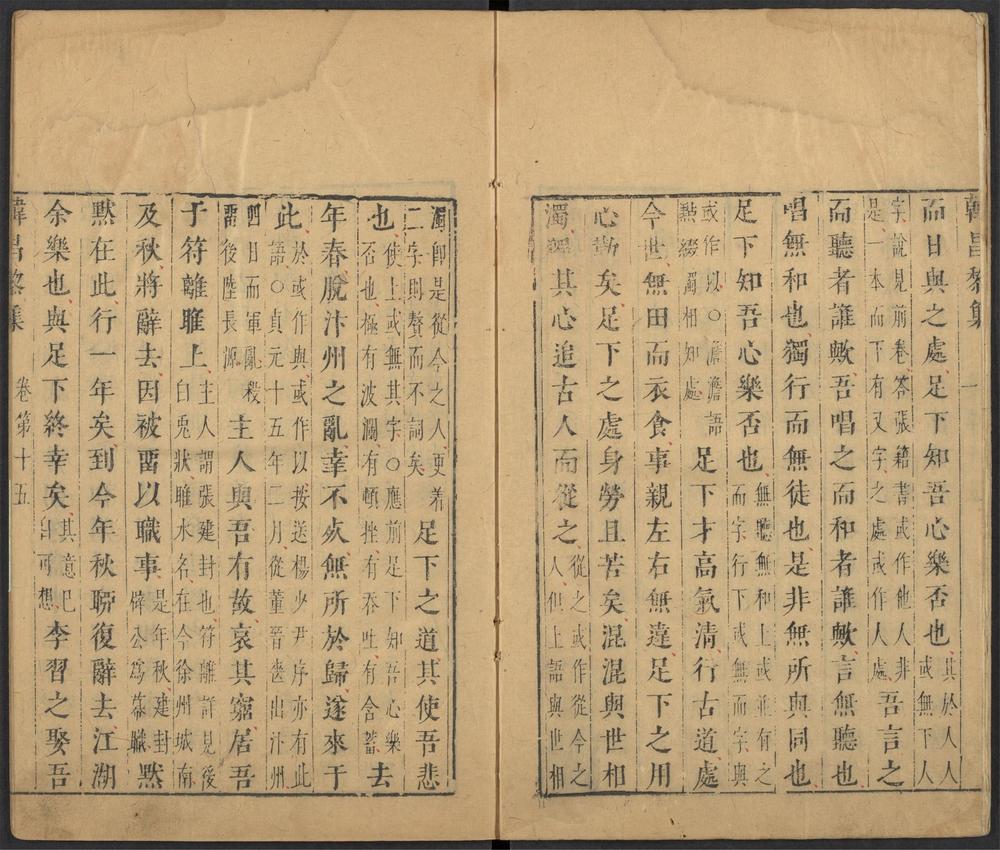 韓昌黎集 一
而日與之處足下知吾心樂否也
其於人人
或無下人
字說見前卷答張籍書或作他人非
是一本而下有又字之處或作人處
吾言之
而聽者誰歟吾唱之而和者誰歟言無聽也
唱無和也獨行而無徒也是非無所與同也
足下知吾心樂否也
無聽無和上或並有之
而字行下或無而字與
或作以○澹澹語
㸃綴濁相知處
足下才高氣清行古道處
今世無田而衣食事親左右無違足下之用
心勤矣足下之處身勞且苦矣混混與世相
濁獨其心追古人而從之
從之或作從今之
人但上語與世相
濁卽是從今之人更着
二字則贅而不詞矣
足下之道其使吾悲
也
使上或無其字○應前是下知吾心樂
否也極有波瀾有頓挫有吞吐有含蓄
去
年春脫汴州之亂幸不死無所於歸遂來于
此
於或作與或作以按送楊少尹序亦有此
語○貞元十五年二月從董晉喪出汴州
四日而軍亂殺
畱後陸長源
主人與吾有故哀其窮居吾
于符離睢上
主人謂張建封也符離詳見後
白兎狀睢水名在今徐州城南
及秋將辭去因被畱以職事
是年秋建封
辟公爲幕職
默
默在此行一年矣到今年秋聊復辭去江湖
余樂也與足下終幸矣
其意巳
出可想
李習之娶吾
韓昌黎集 卷第十五